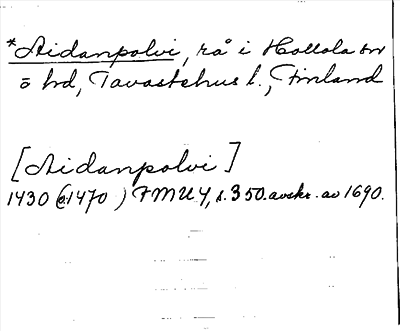 *Aidanpolvi, rå i Hollola sn
o hd, Tavastehus l., Finland
[Aidanpolvi]
1430 (c:1470) FMU 4, s. 350. avskr. av 1690.